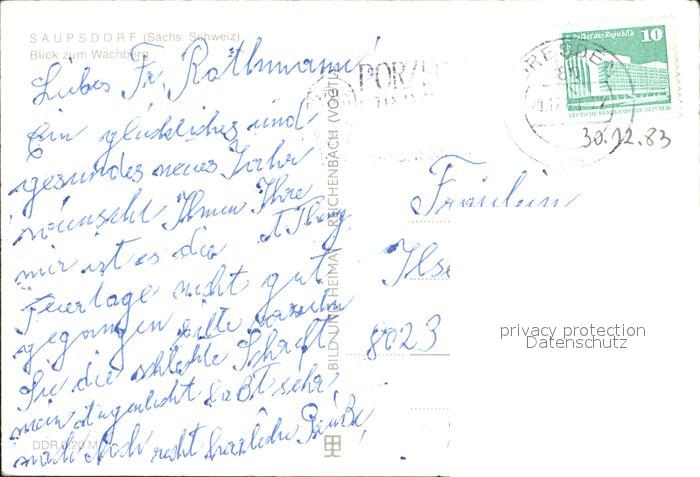 SAUPSDORF (Sächs. Schweiz)
Blick zum Wachberg
Liebes Frl. Rothmann!
Ein glückliches und
gesundes neues Jahr
wünscht Ihnen Ihre
mir ist es die
Feiertage nicht gut
gegangen bitte verzeihn
Sie die schlechte Schrift
mein Augenlicht läßt sehr
nach. Noch recht herzliche Grüße
DDR 0,20 M
BILD UND HEIMAT REICHENBACH (VOGTL)
PORZ
Palast der Republik
10
DEUTSCHE DEMOKRATISCHE REPUBLIK
DRESDEN
30.12.83
Fräulein
Ilse
8023
privacy protection
Datenschutz